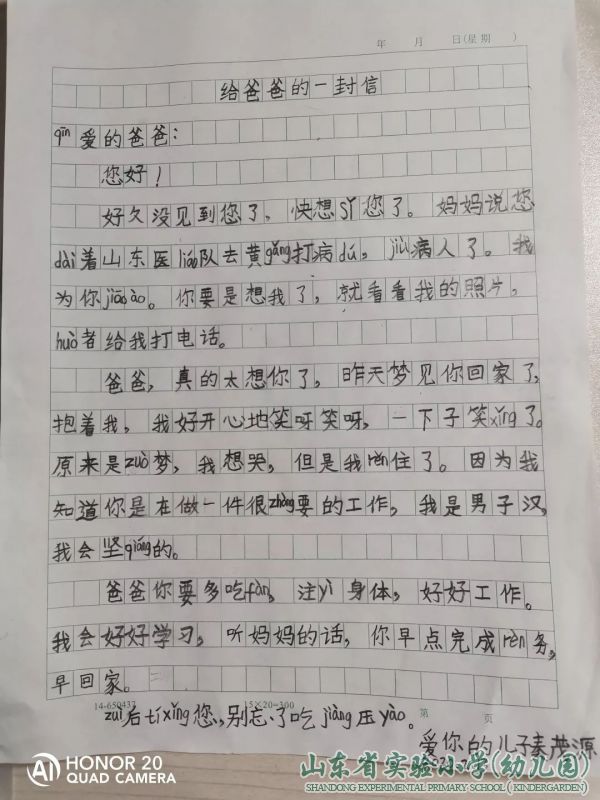 年 月 日(星期 )
给爸爸的一封信
qīn爱的爸爸：
您好！
好久没见到您了，快想sǐ您了。妈妈说您
dài着山东医liáo队去黄gǎng打病dú，jiù病人了。我
为你jiāoào。你要是想我了，就看看我的照片，
huò者给我打电话。
爸爸，真的太想你了，昨天梦见你回家了，
抱着我，我好开心地笑呀笑呀，一下子笑xǐng了。
原来是zuò梦，我想哭，但是我rěn住了。因为我
知道你是在做一件很zhòng要的工作，我是男子汉，
我会坚qiáng的。
爸爸你要多吃fàn，注yì身体，好好工作。
我会好好学习，听妈妈的话，你早点完成rèn务，
早回家。
14-650437 15×20=300 第 页
zuì后tíxǐng您，别忘了吃jiàng压yào。
爱你的儿子秦茂源
HONOR 20
AI QUAD CAMERA
山东省实验小学(幼儿园)
SHANDONG EXPERIMENTAL PRIMARY SCHOOL ( KINDERGARDEN)